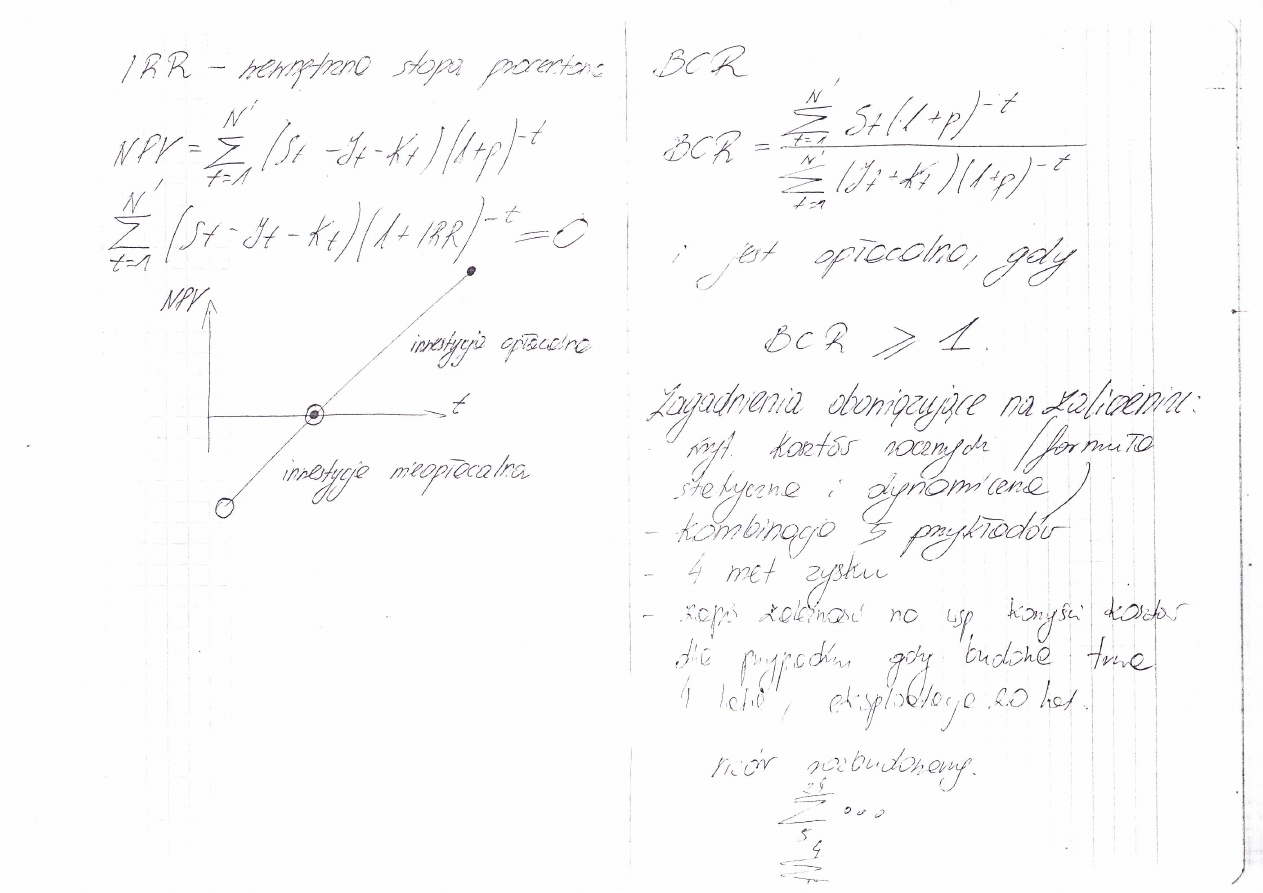 IRR – wewnętrzna stopa procentowa
NPV = \sum_{t=1}^{N'} (St - Jt - Kt)(1+p)^{-t}
\sum_{t=1}^{N'} (St - Jt - Kt)(1+IRR)^{-t} = 0
NPV
inwestycja opłacalna
t
inwestycja nieopłacalna
BCR
BCR = \frac{\sum_{t=1}^{N'} St(1+p)^{-t}}{\sum_{t=1}^{N'} (Jt+Kt)(1+p)^{-t}}
i jest opłacalna, gdy
BCR ⩾ 1.
Zagadnienia obowiązujące na zaliczeniu:
- kosztów rocznych (formuła
statyczna i dynamiczna)
- kombinacja 5 przykładów
- 4 met zysku
- zapis zależność na wsp korzyści kosztów
dla przypadku gdy budowa trwa
4 lata, eksploatacja 20 lat.
wzór rozbudowany.
\sum_{5}^{24} ...
\sum^{4}